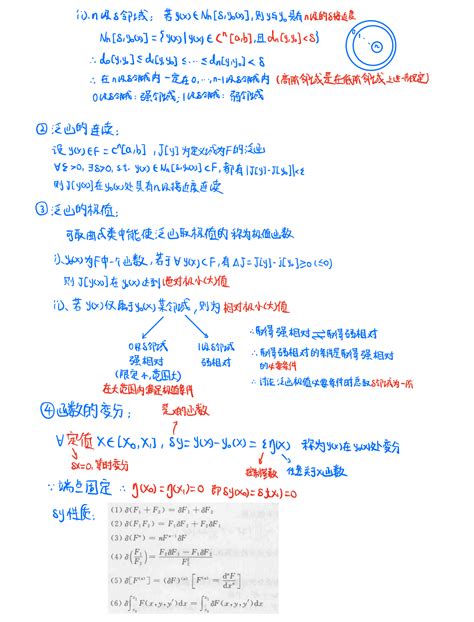 ii), n级δ邻域: 若 y(x) ∈ Nn[δ,y₀(x)], 则y与y₀具有n级的δ接近度
Nn[δ,y₀(x)] = {y(x) | y(x) ∈ Cⁿ[a,b], 且 dn[y,y₀] < δ}
∴ d₀[y,y₀] ≤ d₁[y,y₀] ≤ … ≤ dn[y,y₀] < δ
∴ 在n级δ邻域内一定在0,…,n-1级δ邻域内 (高阶邻域是在低阶邻域上进一步限定)
0级δ邻域: 强邻域; 1级δ邻域: 弱邻域
② 泛函的连续:
设 y(x) ∈ F = Cⁿ[a,b], J[y]为定义域为F的泛函
∀ε>0, ∃δ>0, s.t. y(x) ∈ Nn[δ,y₀(x)] ⊂ F, 都有 |J[y]-J[y₀]|<ε
则 J[y(x)]在y₀(x)处具有n级接近度连续
③ 泛函的极值:
可取曲线类中能使泛函取极值的 称为极值函数
i), y₀(x)为F中一个函数, 若于∀y(x)⊂F, 有 ΔJ=J[y]-J[y₀]≥0 (≤0)
则 J[y(x)]在y₀(x)达到绝对极小(大)值
ii), 若y(x)仅属于y₀(x)某邻域, 则为相对极小(大)值
0级δ邻域 1级δ邻域
强相对 弱相对
(限定小,范围大)
在大范围内满足极值条件
∵取得强相对⇌取得弱相对
∴取得弱相对的条件是取得强相对
的必要条件
∴讨论泛函极值必要条件时总取δ邻域为一阶
④ 函数的变分: 是x的函数
∀定值 x∈[x₀,x₁], δy=y(x)-y₀(x)=εη(x) 称为y(x)在y₀(x)处变分
δx=0, 等时变分 任意关于x函数
∵端点固定 ∴ η(x₀)=η(x₁)=0 即δy(x₀)=δy(x₁)=0
δy性质:
(1) δ(F₁ + F₂) = δF₁ + δF₂
(2) δ(F₁F₂) = F₁δF₂ + F₂δF₁
(3) δ(Fⁿ) = nFⁿ⁻¹δF
(4) δ(F₁/F₂) = (F₂δF₁ − F₁δF₂)/F₂²
(5) δ[F⁽ⁿ⁾] = (δF)⁽ⁿ⁾ [F⁽ⁿ⁾ = dⁿF/dxⁿ]
(6) δ∫ₓ₀ˣ¹ F(x,y,y′)dx = ∫ₓ₀ˣ¹ δF(x,y,y′)dx